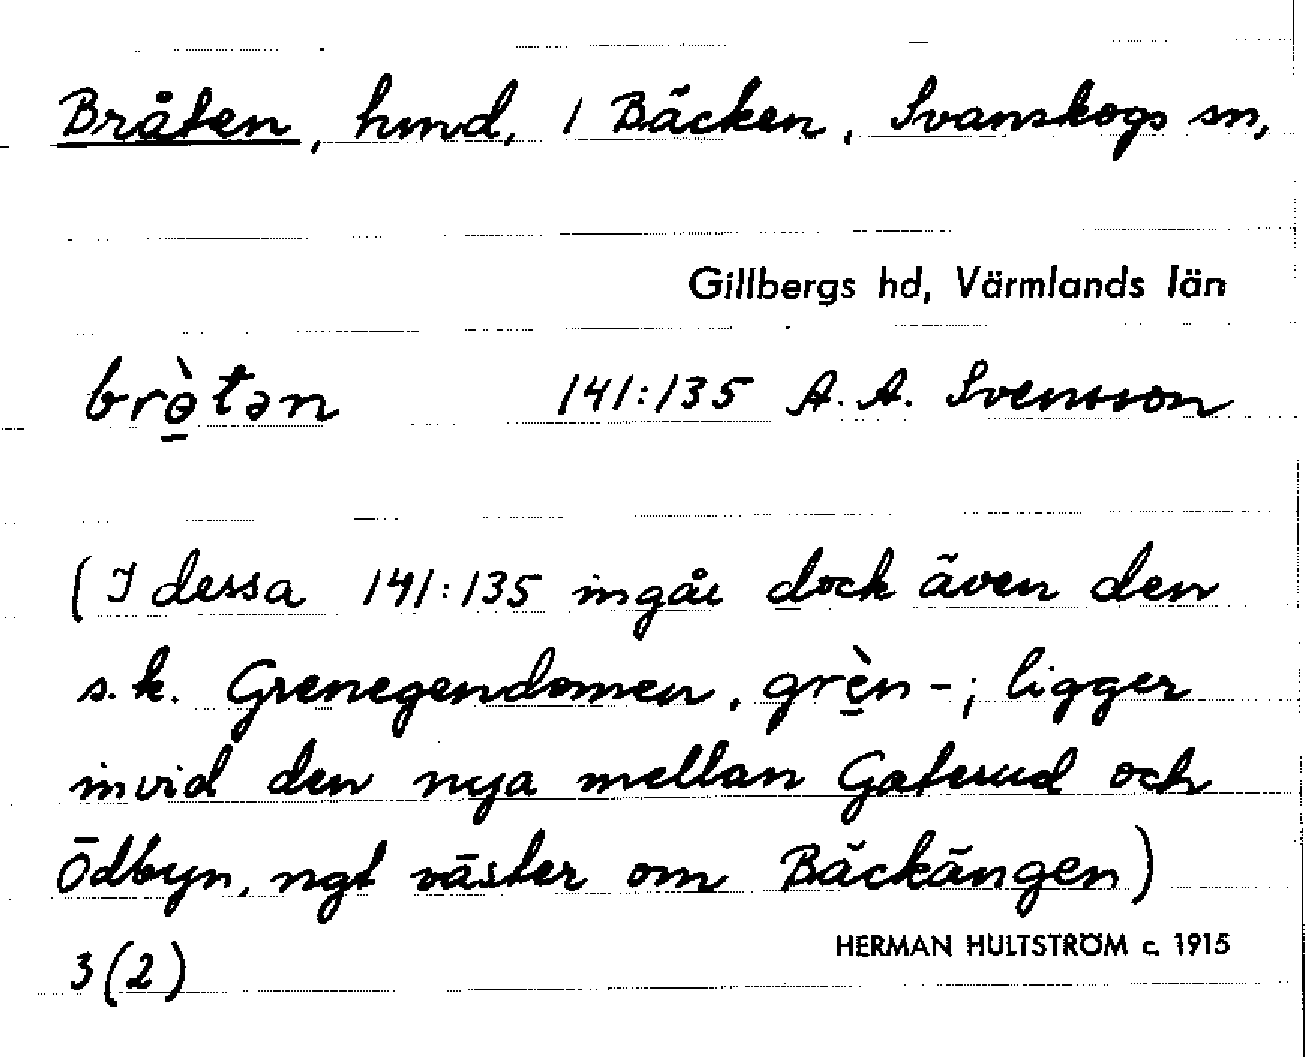 Bråten, hmd, 1 Bäcken, Svanskogs sn,
Gillbergs hd, Värmlands län
brò̠tən 141:135 A. A. Svensson
(I dessa 141:135 ingår dock även den
s.k. Grenegendomen, grè̠n-; ligger
invid den nya mellan Gaterud och
Ödbyn, ngt väster om Bäckängen)
3(2) HERMAN HULTSTRÖM c. 1915